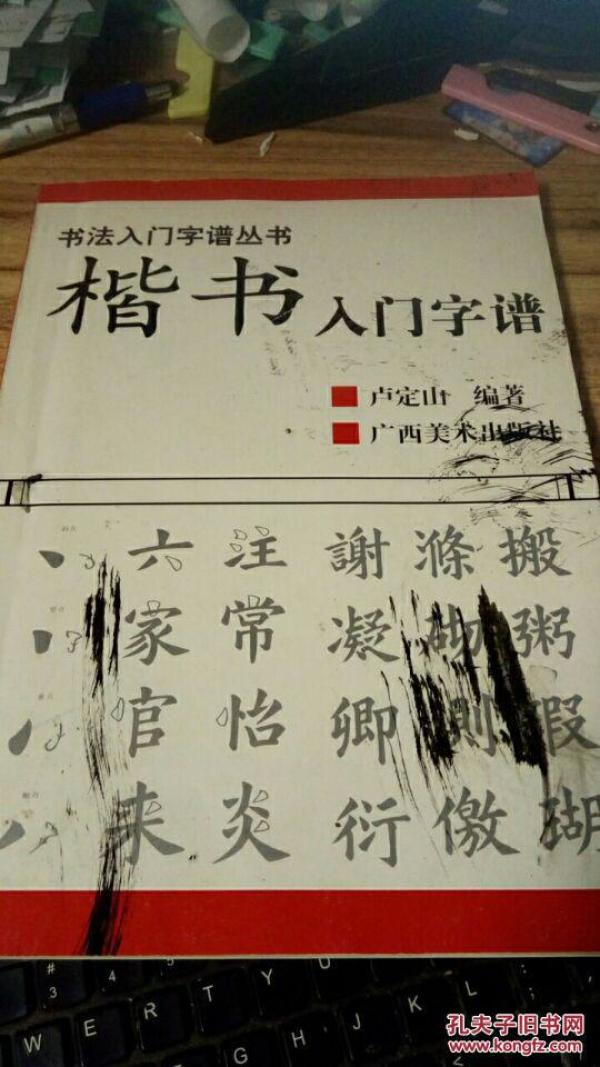 书法入门字谱丛书
楷书入门字谱
卢定山 编著
广西美术出版社
六 注 謝 滌 搬
家 常 凝 砌 粥
官 怡 卿 測 暇
来 炎 衍 傲 瑚
# 3 $ 4
W E R T Y U
H J K L
孔夫子旧书网
www.kongfz.com